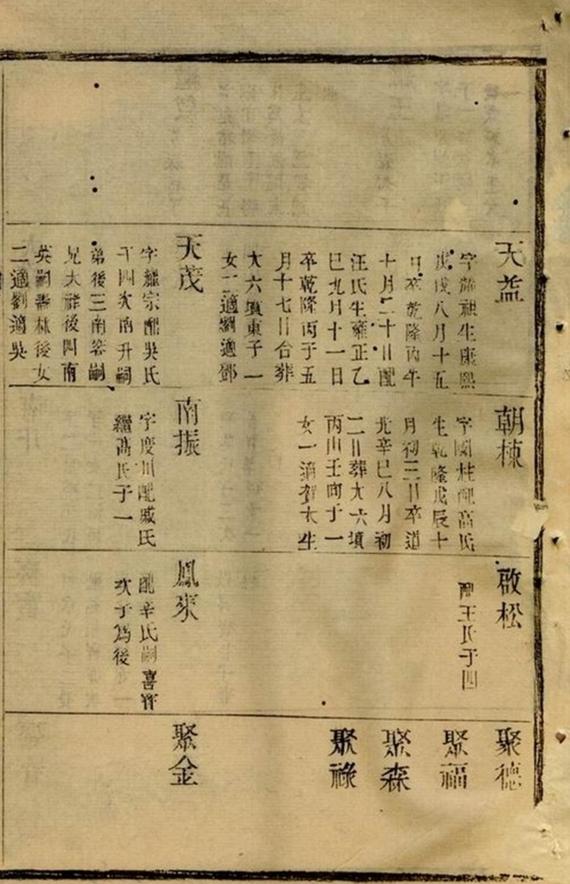 天益
字
生康熙
戊戌八月十五
日卒乾隆丙午
十月二十日配
汪氏生雍正乙
巳九月十一日
卒乾隆丙子五
月十七日合葬
大六塡東子一
女二適劉適鄧
天茂
字繼宗配吳氏
子四次南升嗣
弟後三南容嗣
兄天祥後四南
英嗣壽林後女
二適劉適吳
朝棟
字國桂配高氏
生乾隆戊辰十
月初三日卒道
光辛巳八月初
二日葬大六塡
丙山壬向子一
女一適賀大生
南振
字慶川配戚氏
繼高氏子一
啟松
配王氏子四
鳳來
配辛氏嗣喜
次子爲後
聚德
聚福
聚森
聚祿
聚金